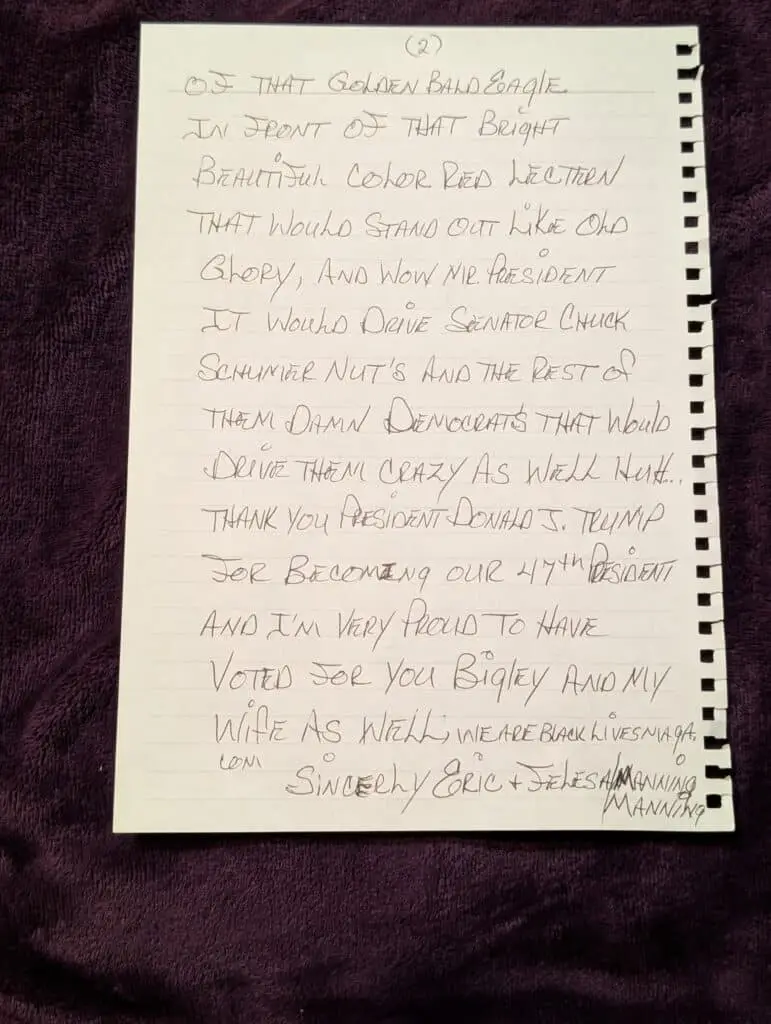 (2)
OF THAT GOLDEN BALD EAGLE
IN FRONT OF THAT BRIGHT
BEAUTIFUL COLOR RED LECTERN
THAT WOULD STAND OUT LIKE OLD
GLORY, AND WOW MR. PRESIDENT
IT WOULD DRIVE SENATOR CHUCK
SCHUMER NUT'S AND THE REST OF
THEM DAMN DEMOCRATS THAT WOULD
DRIVE THEM CRAZY AS WELL HUH..
THANK YOU PRESIDENT DONALD J. TRUMP
FOR BECOMING OUR 47th PRESIDENT
AND I'M VERY PROUD TO HAVE
VOTED FOR YOU BIGLEY AND MY
WIFE AS WELL, WE ARE BLACKLIVESMAGA.
COM
SINCERLY ERIC + MANNING
MANNING